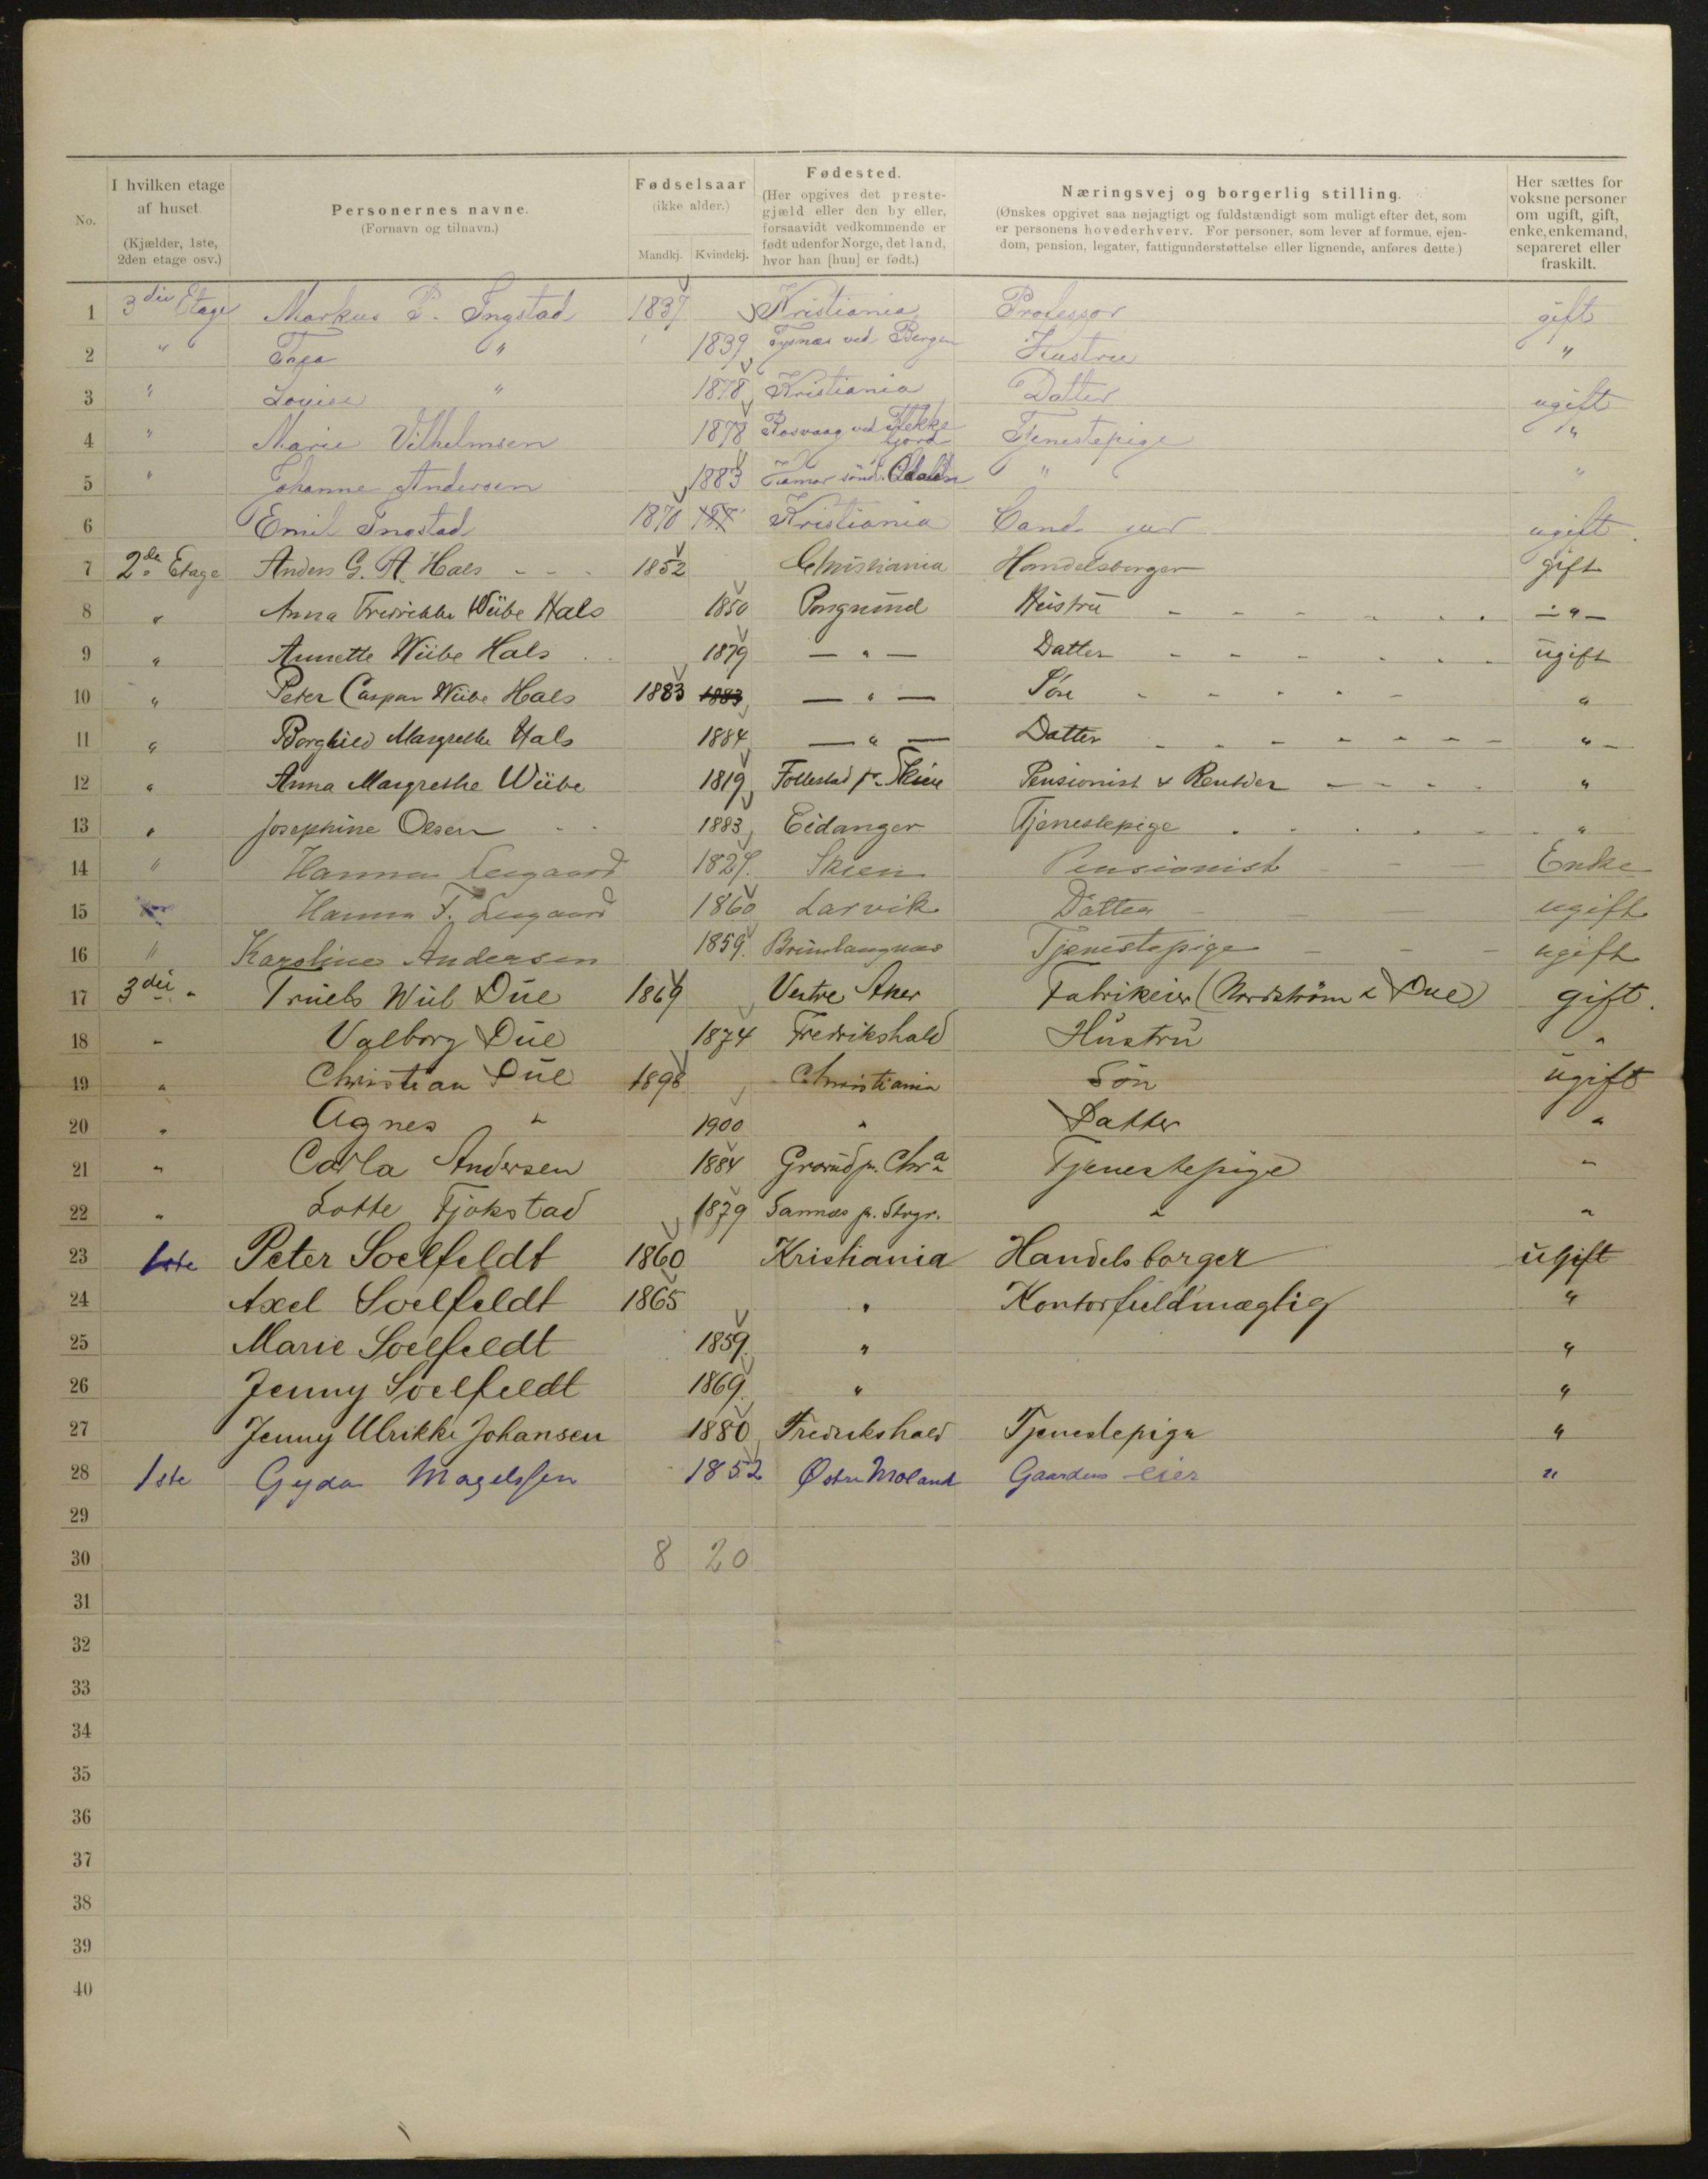 No.
I hvilken etage
af huset.
(Kjælder, 1ste,
2den etage osv.)
Personernes navne.
(Fornavn og tilnavn.)
Fødselsaar
(ikke alder.)
Mandkj. Kvindekj.
Fødested.
(Her opgives det preste-
gjæld eller den by eller,
forsaavidt vedkommende er
født udenfor Norge, det land,
hvor han [hun] er født.)
Næringsvej og borgerlig stilling.
(Ønskes opgivet saa nøjagtigt og fuldstændigt som muligt efter det, som
er personens hovederhverv. For personer, som lever af formue, ejen-
dom, pension, legater, fattigunderstøttelse eller lignende, anføres dette.)
Her sættes for
voksne personer
om ugift, gift,
enke, enkemand,
separeret eller
fraskilt.
1 3die Etage Markus P. Ingstad 1837 Kristiania Professor gift
2 " Thea " 1839 Tysnæs ved Bergen Hustru "
3 " Louise " 1878 Kristiania Datter ugift
4 " Marie Vilhelmsen 1878 Rosvaag ved Flekkefjord Tjenestepige "
5 " Johanne Andersen 1883 Hamar sönd. Odalen " "
6 Emil Ingstad 1870 Kristiania Cand jur ugift.
7 2de Etage Anders G. A. Hals - - - 1852 Christiania Handelsborger gift
8 " Anna Fredrikke Wiibe Hals 1850 Porsgrund Hustru - - - - - - - " -
9 " Annette Wiibe Hals 1879 — " — Datter - - - - - - ugift
10 " Peter Caspar Wiibe Hals 1883 1883 — " — Sön - - - - - "
11 " Borghild Margrethe Hals 1884 — " — Datter - - - - - - - " -
12 " Anna Margrethe Wiibe 1819 Follestad pr. Skien Pensionist & Rentier - - - - "
13 " Josephine Olsen - - 1883 Eidanger Tjenestepige . . . . . . "
14 " Hanna Leegaard 1829. Skien Pensionist - - - Enke
15 Hanna F. Leegaard 1860 Larvik Datter - - - ugift
16 " Karoline Andersen 1859. Brunlangnæs Tjenestepige - - - ugift
17 3die " Truels Wiil Due 1869 Vestre Aker Fabrikeier (Nordström & Due) gift.
18 " Valborg Due 1874 Fredrikshald Hustru "
19 " Christian Due 1898 Christiania Sön ugift
20 " Agnes " 1900 " Datter "
21 " Carla Andersen 1884 Grorud pr. Chra Tjenestepige "
22 " Lotte Tjøkstad 1879 Sannæs pr. Stvgr. " "
23 1ste Peter Soelfeldt 1860 Kristiania Handelsborger ugift
24 Axel Soelfeldt 1865 " Kontorfuldmægtig "
25 Marie Soelfeldt 1859. " "
26 Jenny Soelfeldt 1869. " "
27 Jenny Ulrikke Johansen 1880 Fredrikshald Tjenestepige "
28 1ste Gyda Magelssen 1852 Østre Moland Gaardens eier "
29
30 8 20
31
32
33
34
35
36
37
38
39
40